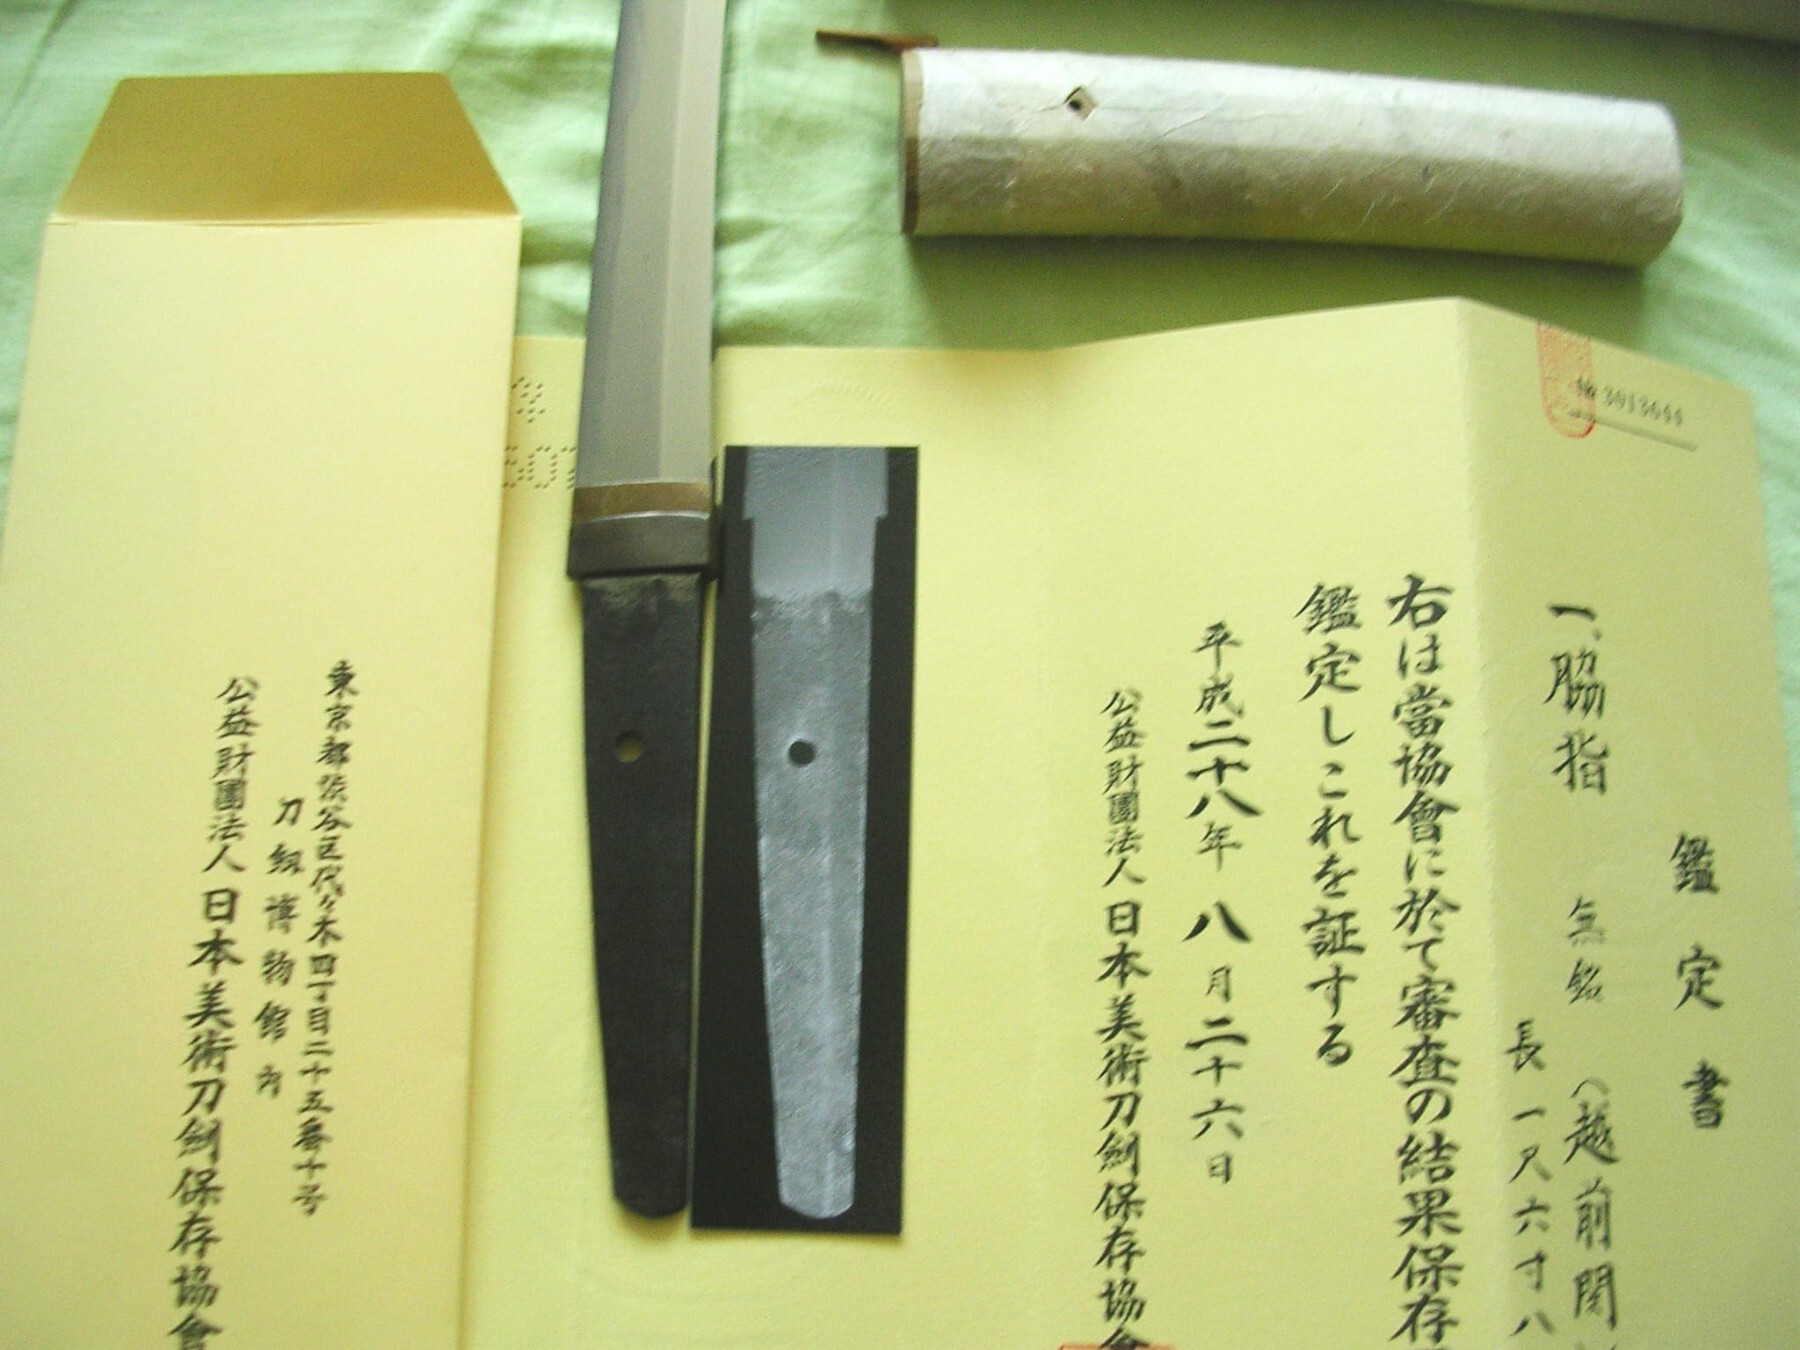 鑑定書
一、脇指 無銘 (越前関
長一尺六寸八
右は當協會に於て審査の結果保存
鑑定しこれを証する
平成二十八年八月二十六日
公益財團法人日本美術刀剣保存協會
№ 3013644
東京都渋谷区代々木四丁目二十五番十号
刀剣博物館内
公益財團法人日本美術刀剣保存協會